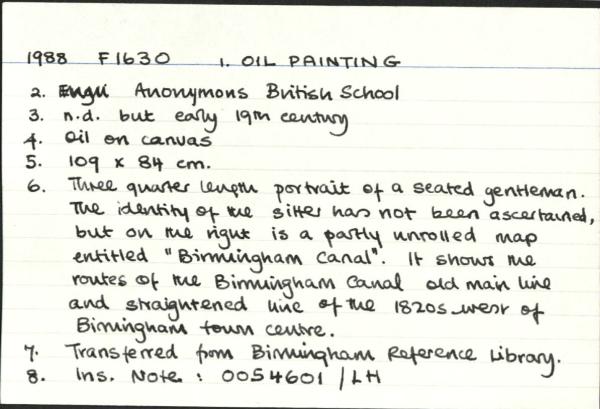 1988 F1630 1. OIL PAINTING
2. Anonymous British School
3. n.d. but early 19th century
4. Oil on canvas
5. 109 x 84 cm.
6. Three quarter length portrait of a seated gentleman.
The identity of the sitter has not been ascertained,
but on the right is a partly unrolled map
entitled "Birmingham Canal". It shows the
routes of the Birmingham Canal old main line
and straightened line of the 1820s west of
Birmingham town centre.
7. Transferred from Birmingham Reference Library.
8. Ins. Note : 0054601 / LH